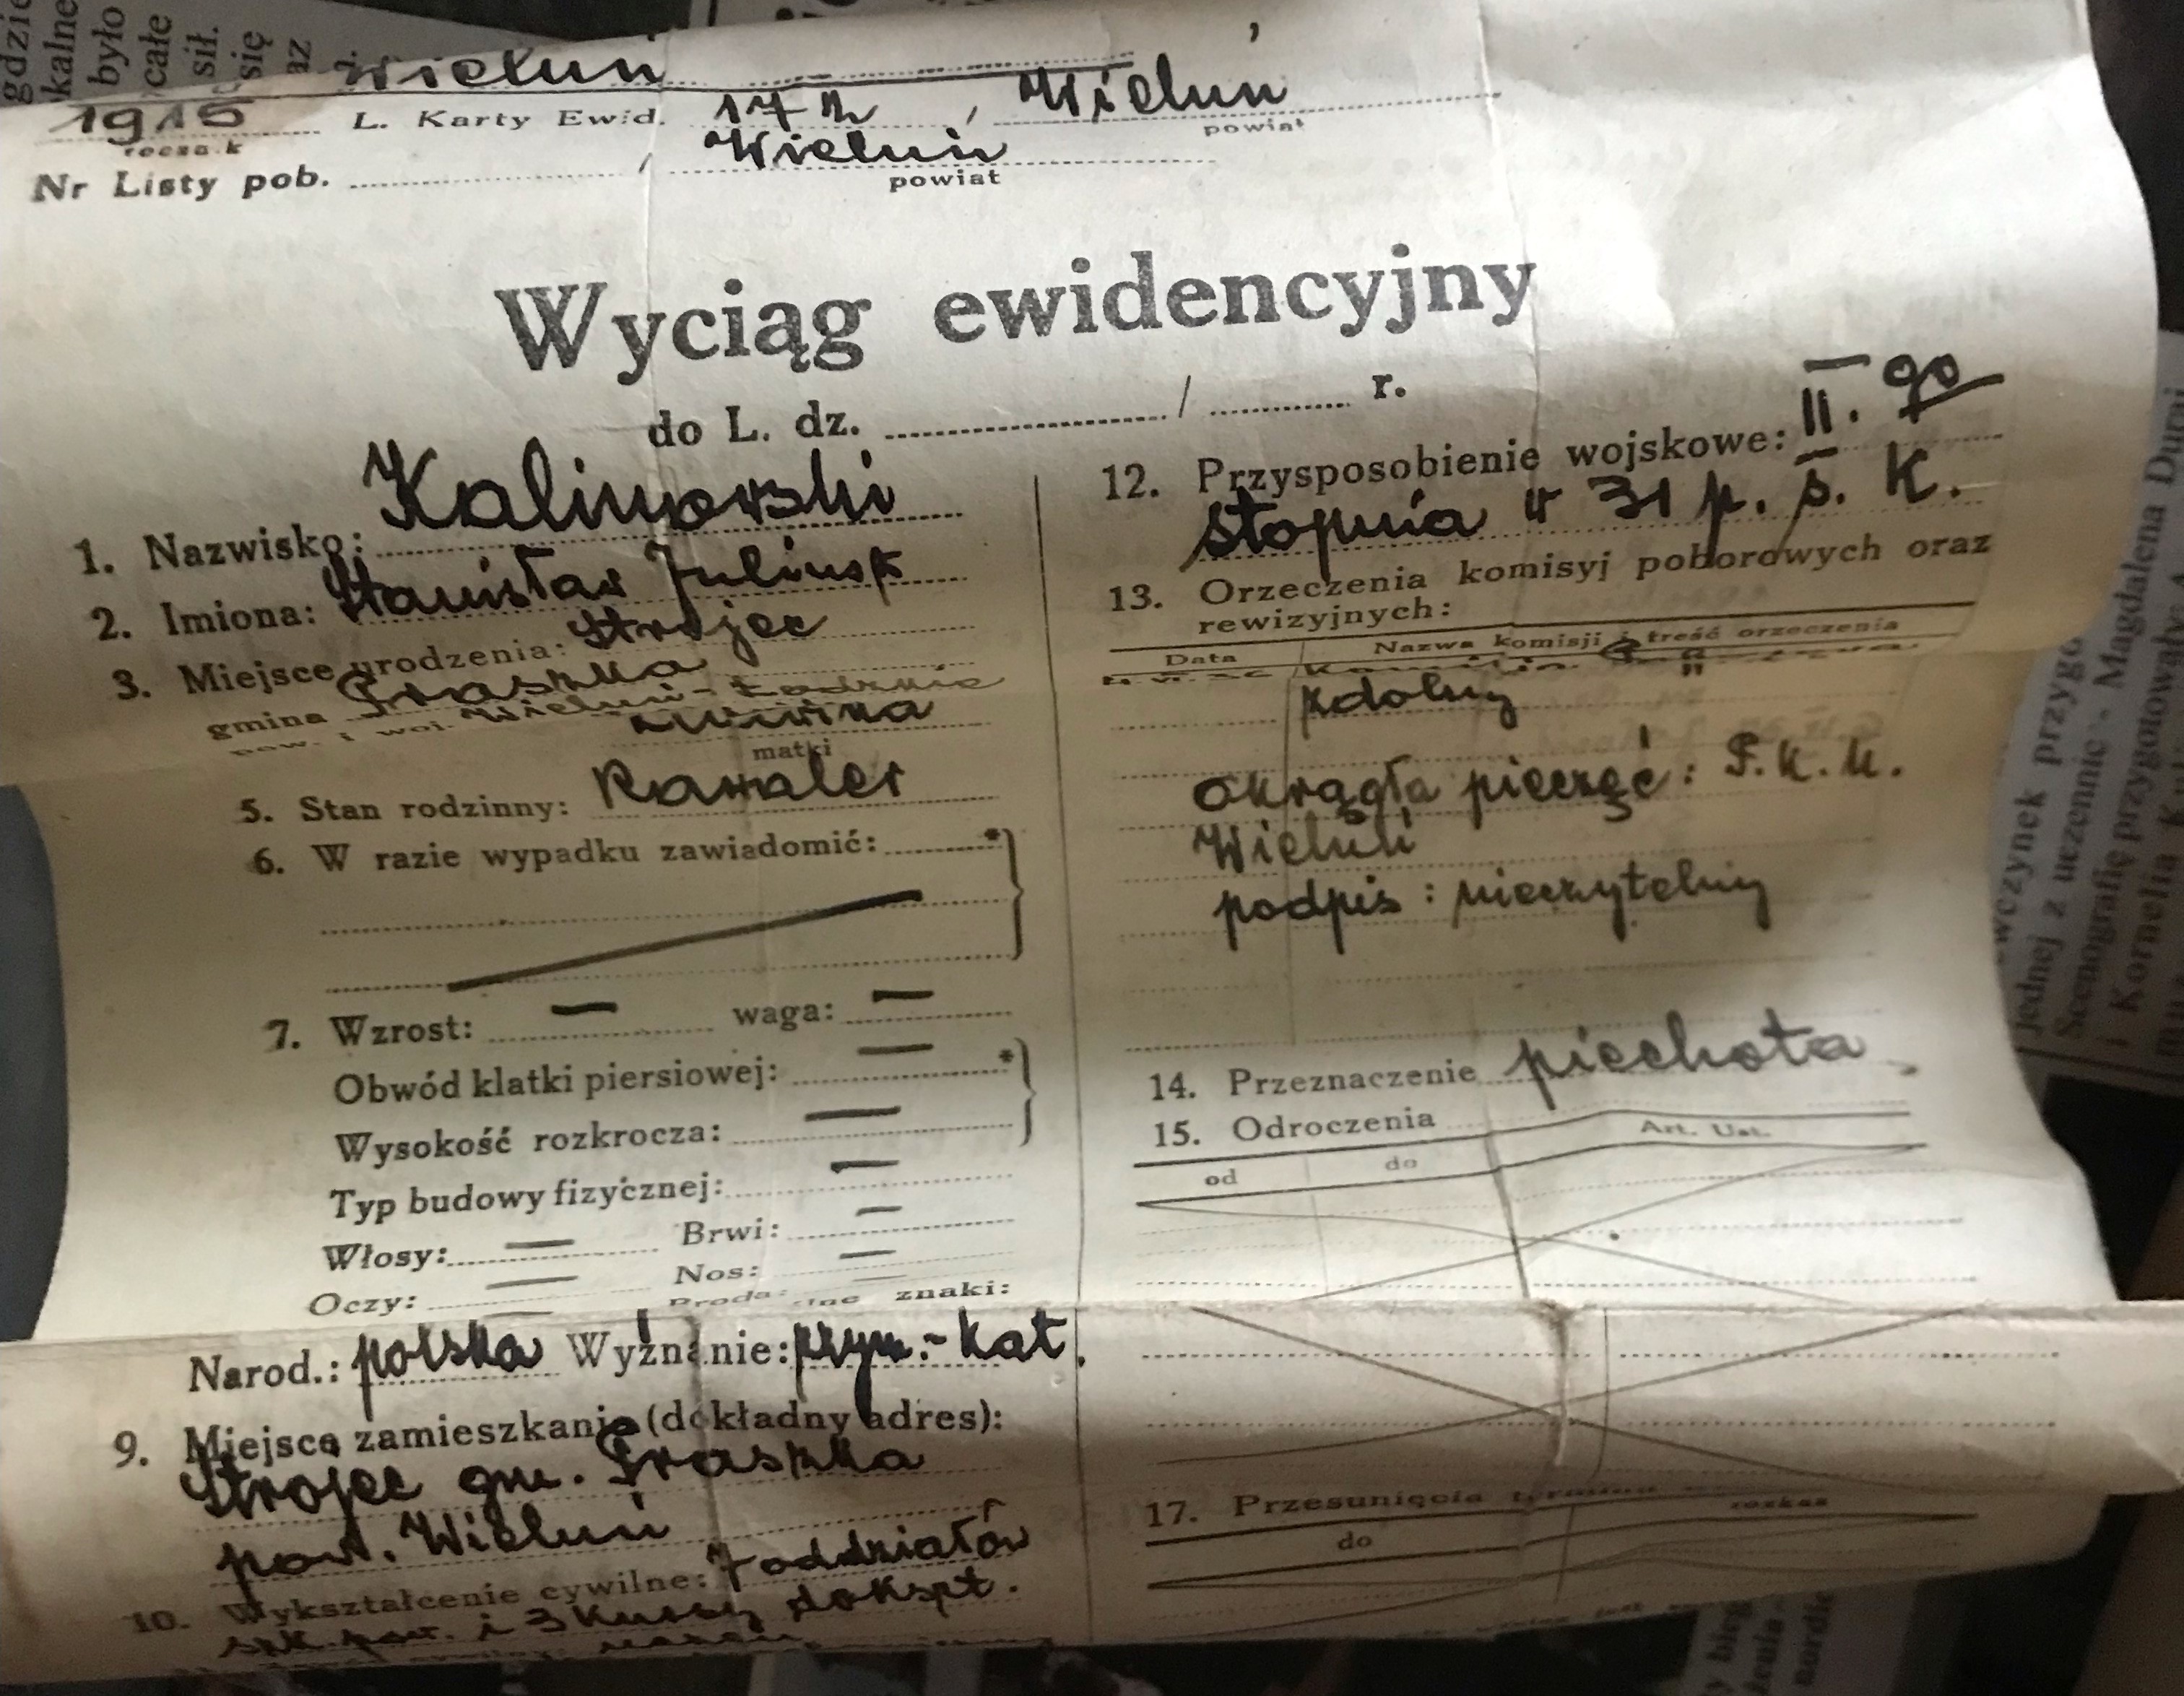 Wieluń
1915 L. Karty Ewid. 172 / Wieluń
rocznik powiat
Nr Listy pob. / Wieluń
powiat
Wyciąg ewidencyjny
do L. dz. / r.
1. Nazwisko: Kalinowski
2. Imiona: Stanisław Juliusz
3. Miejsce urodzenia: Strojec
gmina Praszka
pow. i woj. Wieluń - Łódzkie
matki
5. Stan rodzinny: Kawaler
6. W razie wypadku zawiadomić: *
7. Wzrost: — waga: —
Obwód klatki piersiowej: — *
Wysokość rozkrocza: —
Typ budowy fizycznej: —
Włosy: — Brwi: —
Oczy: — Nos: —
znaki:
Narod.: polska Wyznanie: rzym.-kat.
9. Miejsce zamieszkania (dokładny adres):
Strojec gm. Praszka
pow. Wieluń
10. Wykształcenie cywilne: 7 oddziałów
szk. pow. i 3 kursy dokszt.
12. Przysposobienie wojskowe: II. go
stopnia w 31 p. s. K.
13. Orzeczenia komisyj poborowych oraz
rewizyjnych:
Data Nazwa komisji i treść orzeczenia
zdolny "
okrągła pieczęć: P.K.U.
Wieluń
podpis: nieczytelny
14. Przeznaczenie piechota
15. Odroczenia
od do Art. Ust.
17. Przesunięcia
do
gdzie
kalne
było
całe
sił.
się
az
Jednej z uczennic - Magdalena Dumi
Scenografię przygotowały: A
i Kornelia K